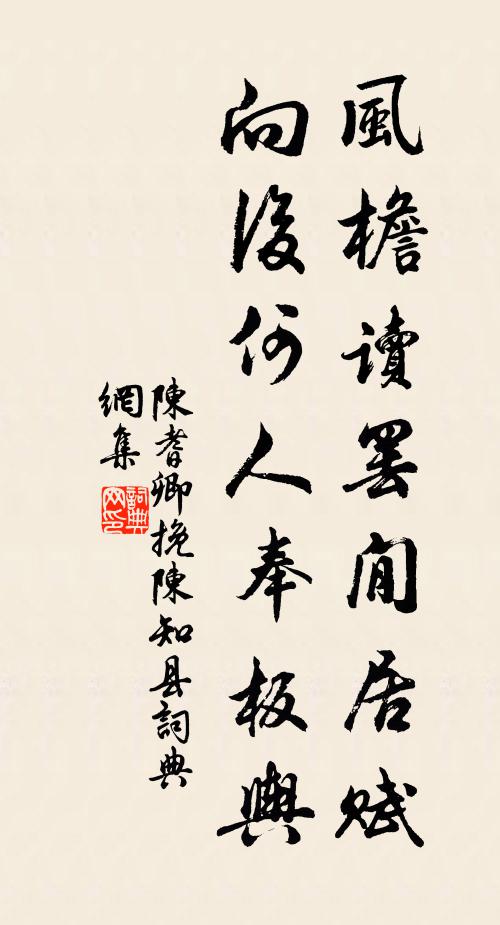 風檐讀罢閒居賦
向後何人奉板輿
陳耆卿挽陳知县詞典
網集
詞典
网印